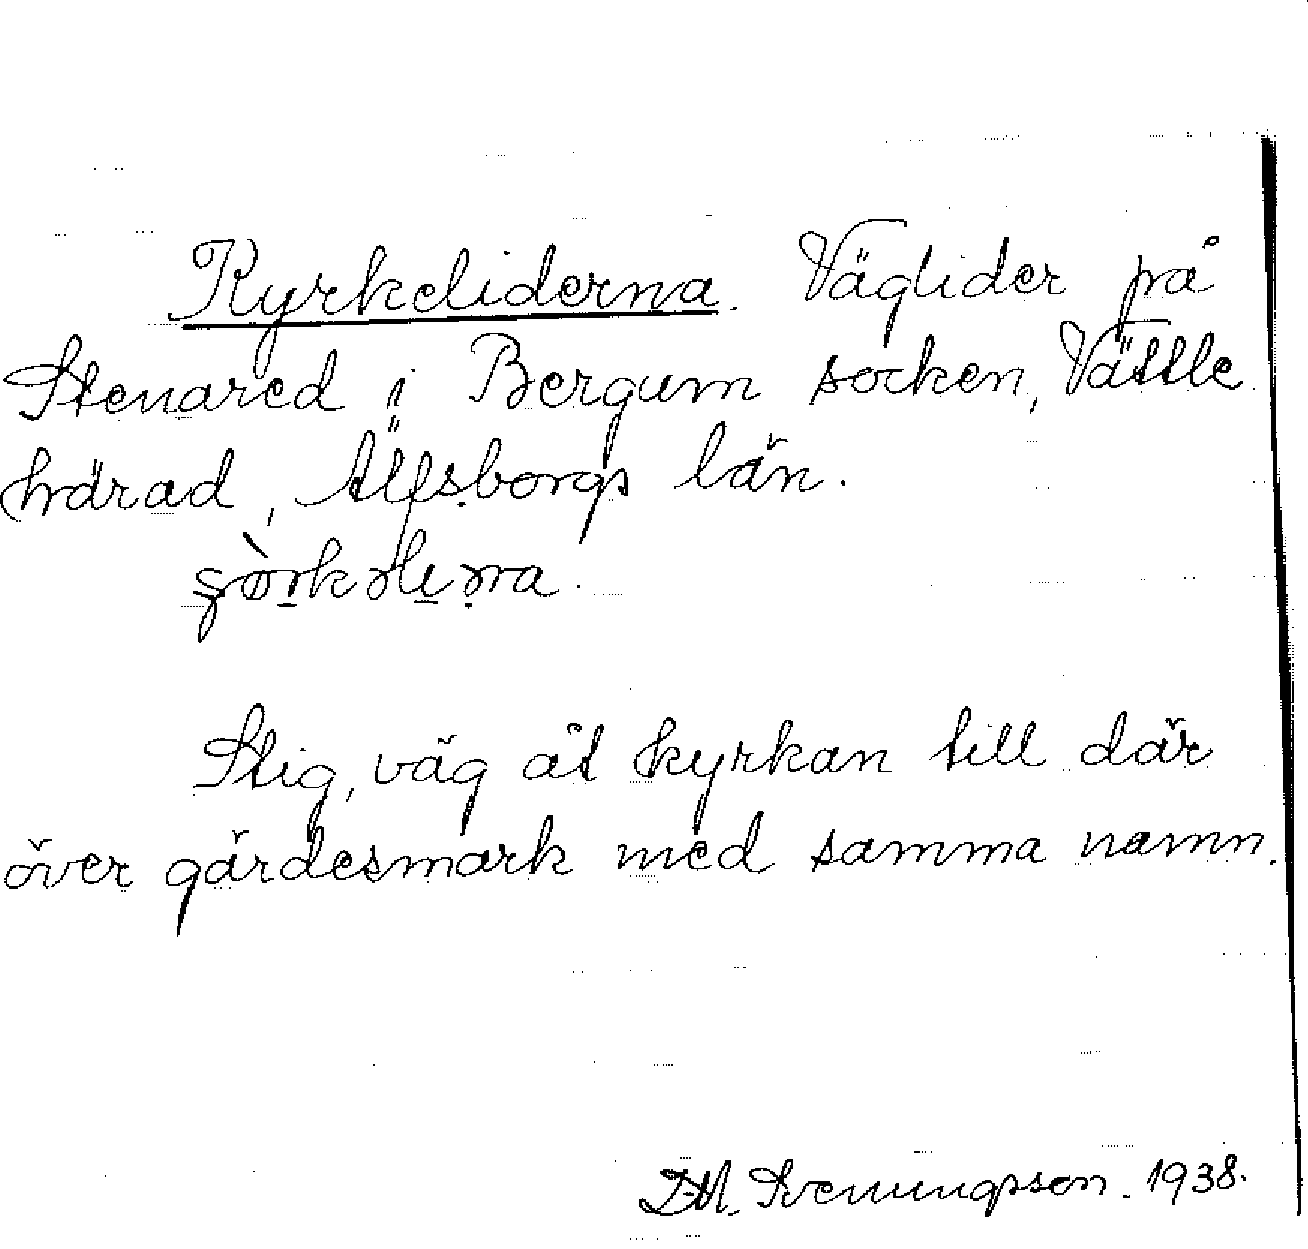 Kyrkeliderna. Väglider på
Stenared i Bergum socken, Vättle
härad, Älfsborgs län.
Stig, väg åt kyrkan till där
över gärdesmark med samma namn.
D.M. Svenungsson. 1938.